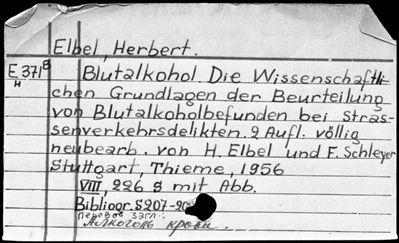 Elbel, Herbert.
E 371 B
H
Blutalkohol. Die Wissenschaftli-
chen Grundlagen der Beurteilung
von Blutalkoholbefunden bei Stras-
senverkehrsdelikten. 2 Aufl. völlig
neubearb. von H. Elbel und F. Schleyer
Stuttgart, Thieme, 1956
VIII, 226 S mit Abb.
Bibliogr. S 207-20
Перевод загл.:
Алкоголь крови.